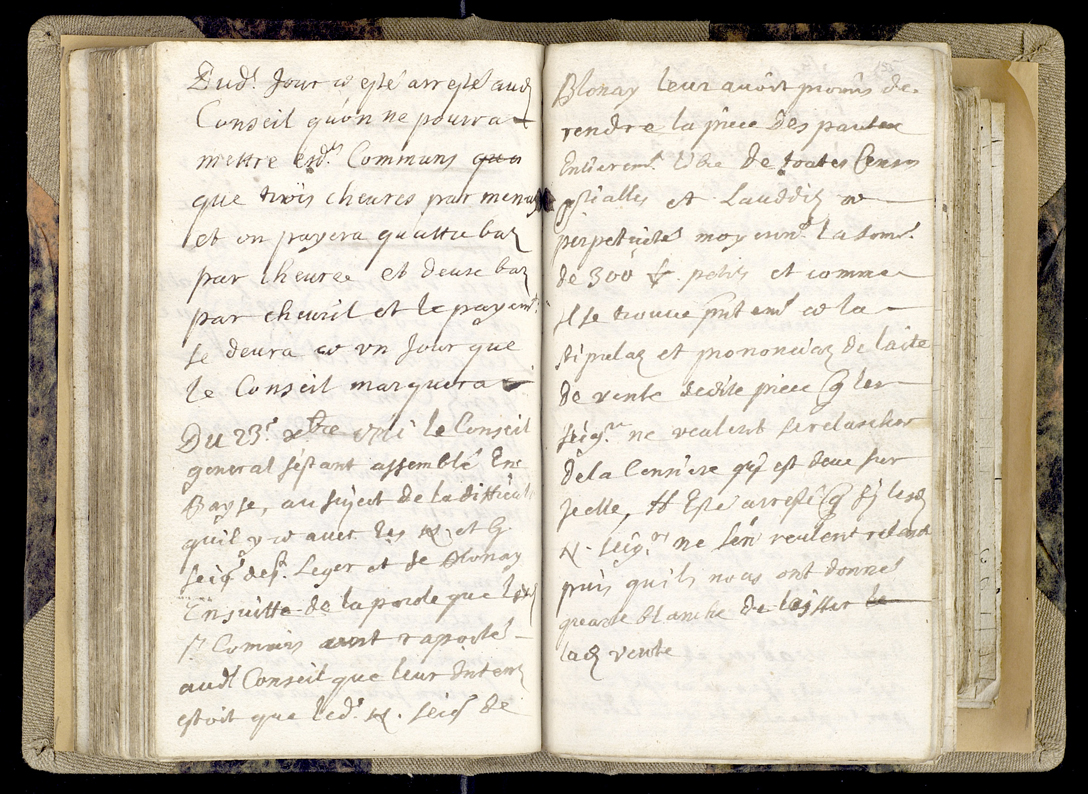 Dud.t Jour a esté arresté aud
Conseil qu'on ne pourra
mettre esd.ts Communs que
que trois cheures par menag
et on payera quattre batz
par cheure et deuse batz
par chevril et le payemt.
se devra a un Jour que
le Conseil marquera
Du 23.e xbre le Conseil
general s'estant assemblé En
Bayse, au suject de la difficul
quil y a avec les N. et G
seig.rs de st. Leger et de Blonay
Ensuitte de la parole que lesd
Srs Commis avont raporté
aud.t Conseil que leur Inten
estoit que led.t N. seigr de
Blonay leur avoit promis de
rendre la piece des
Entierem.t libre de toutes Censes
et Laudz a
perpetuité moyenn.t la som.e
de 300 petits et comme
Il se trouve pntemt a la
stipula et prononcia de lacte
de vente dedite piece q les
seigrs ne veulent se relascher
de la Censiere qui est deue sur
Icelle, Il Esté arresté q sy lesd
N. seig.rs ne s'en veulent relasch
puis quils nous ont donné
quarte blanche de laisser le
lad vente